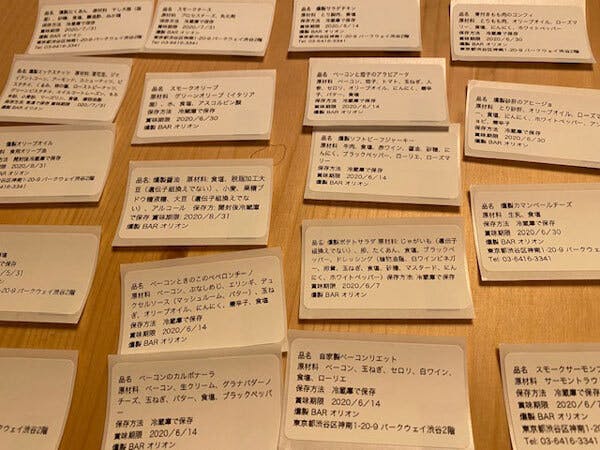 品名 スモークチーズ
原材料 プロセスチーズ、乳化剤
賞味期限
保存方法 冷蔵庫で保存
燻製 BAR オリオン
東京都渋谷区神南1-20-9 パークウェイ渋谷2階
Tel 03-6416-3341
品名 燻製サラダチキン
保存方法 冷蔵庫で保存
賞味期限 2020/6/14
燻製 BAR オリオン
東京都渋谷区神南1-20-9 パークウェイ渋谷2階
品名 骨付きもも肉のコンフィ
原材料 とりもも肉、オリーブオイル、ローズマリー、食塩、にんにく
保存方法 冷蔵庫で保存
燻製 BAR オリオン
東京都渋谷区神南1-20-9 パークウェイ渋谷2階
品名 燻製ミックスナッツ
燻製 BAR オリオン
品名 スモークオリーブ
原材料 グリーンオリーブ（イタリア産）、水、食塩、アスコルビン酸
保存方法 冷蔵庫で保存
賞味期限 2020/6/30
燻製 BAR オリオン
品名 ベーコンと茄子のアラビアータ
原材料 ベーコン、茄子、トマト、玉ねぎ、人参、セロリ、オリーブオイル、にんにく、唐辛子、バター、食塩
保存方法 冷蔵庫で保存
賞味期限 2020/6/14
燻製 BAR オリオン
品名 燻製砂肝のアヒージョ
原材料 とり砂肝、オリーブオイル、ローズマリー、食塩、にんにく、ホワイトペッパー、アンチョビ、唐辛子
保存方法 冷蔵庫で保存
燻製 BAR オリオン
品名 燻製オリーブオイル
原材料 食用オリーブ油
保存方法 開封後冷蔵庫で保存
賞味期限 2020/8/31
燻製 BAR オリオン
品名 燻製醤油 原材料: 食塩、脱脂加工大豆（遺伝子組換えでない）、小麦、果糖ブドウ糖液糖、大豆（遺伝子組換えでない）、アルコール 保存方法: 開封後冷蔵庫で保存 賞味期限 2020/8/31
燻製 BAR オリオン
品名 燻製ソフトビーフジャーキー
原材料 牛肉、食塩、赤ワイン、醤油、砂糖、にんにく、ブラックペッパー、ローリエ、ローズマリー
保存方法 冷蔵庫で保存
賞味期限 2020/6/14
燻製 BAR オリオン
品名 燻製カマンベールチーズ
原材料 生乳、食塩
保存方法 冷蔵庫で保存
賞味期限 2020/6/30
燻製 BAR オリオン
東京都渋谷区神南1-20-9 パークウェイ渋谷2階
Tel 03-6416-3341
品名 燻製ポテトサラダ 原材料:じゃがいも（遺伝子組換えでない）、卵、たくあん、食塩、ブラックペッパー、ドレッシング（植物油脂、白ワインビネガー、煎糖、玉ねぎ、食塩、砂糖、マスタード、にんにく、ホワイトペッパー）保存方法 冷蔵庫で保存
賞味期限 2020/6/7
燻製 BAR オリオン
で保存
5/31
-20-9 パークウェイ渋谷2階
品名 ベーコンときのこのペペロンチーノ
原材料 ベーコン、ぶなしめじ、エリンギ、デュクセルソース（マッシュルーム、バター）、玉ねぎ、オリーブオイル、にんにく、唐辛子、食塩
保存方法 冷蔵庫で保存
賞味期限 2020/6/14
燻製 BAR オリオン
品名 ベーコンのカルボナーラ
原材料 ベーコン、生クリーム、グラナパダーノチーズ、玉ねぎ、バター、食塩、ブラックペッパー
保存方法 冷蔵庫で保存
賞味期限 2020/6/14
燻製 BAR オリオン
品名 自家製ベーコンリエット
原材料 ベーコン、玉ねぎ、セロリ、白ワイン、食塩、ローリエ
保存方法 冷蔵庫で保存
賞味期限 2020/6/14
燻製 BAR オリオン
東京都渋谷区神南1-20-9 パークウェイ渋谷2階
品名 スモークサーモン
原材料 サーモントラウ
保存方法 冷蔵庫で保
賞味期限 2020/6/
燻製 BAR オリオン
東京都渋谷区神南1-20
Tel 03-6416-3341
パークウェイ渋谷2階